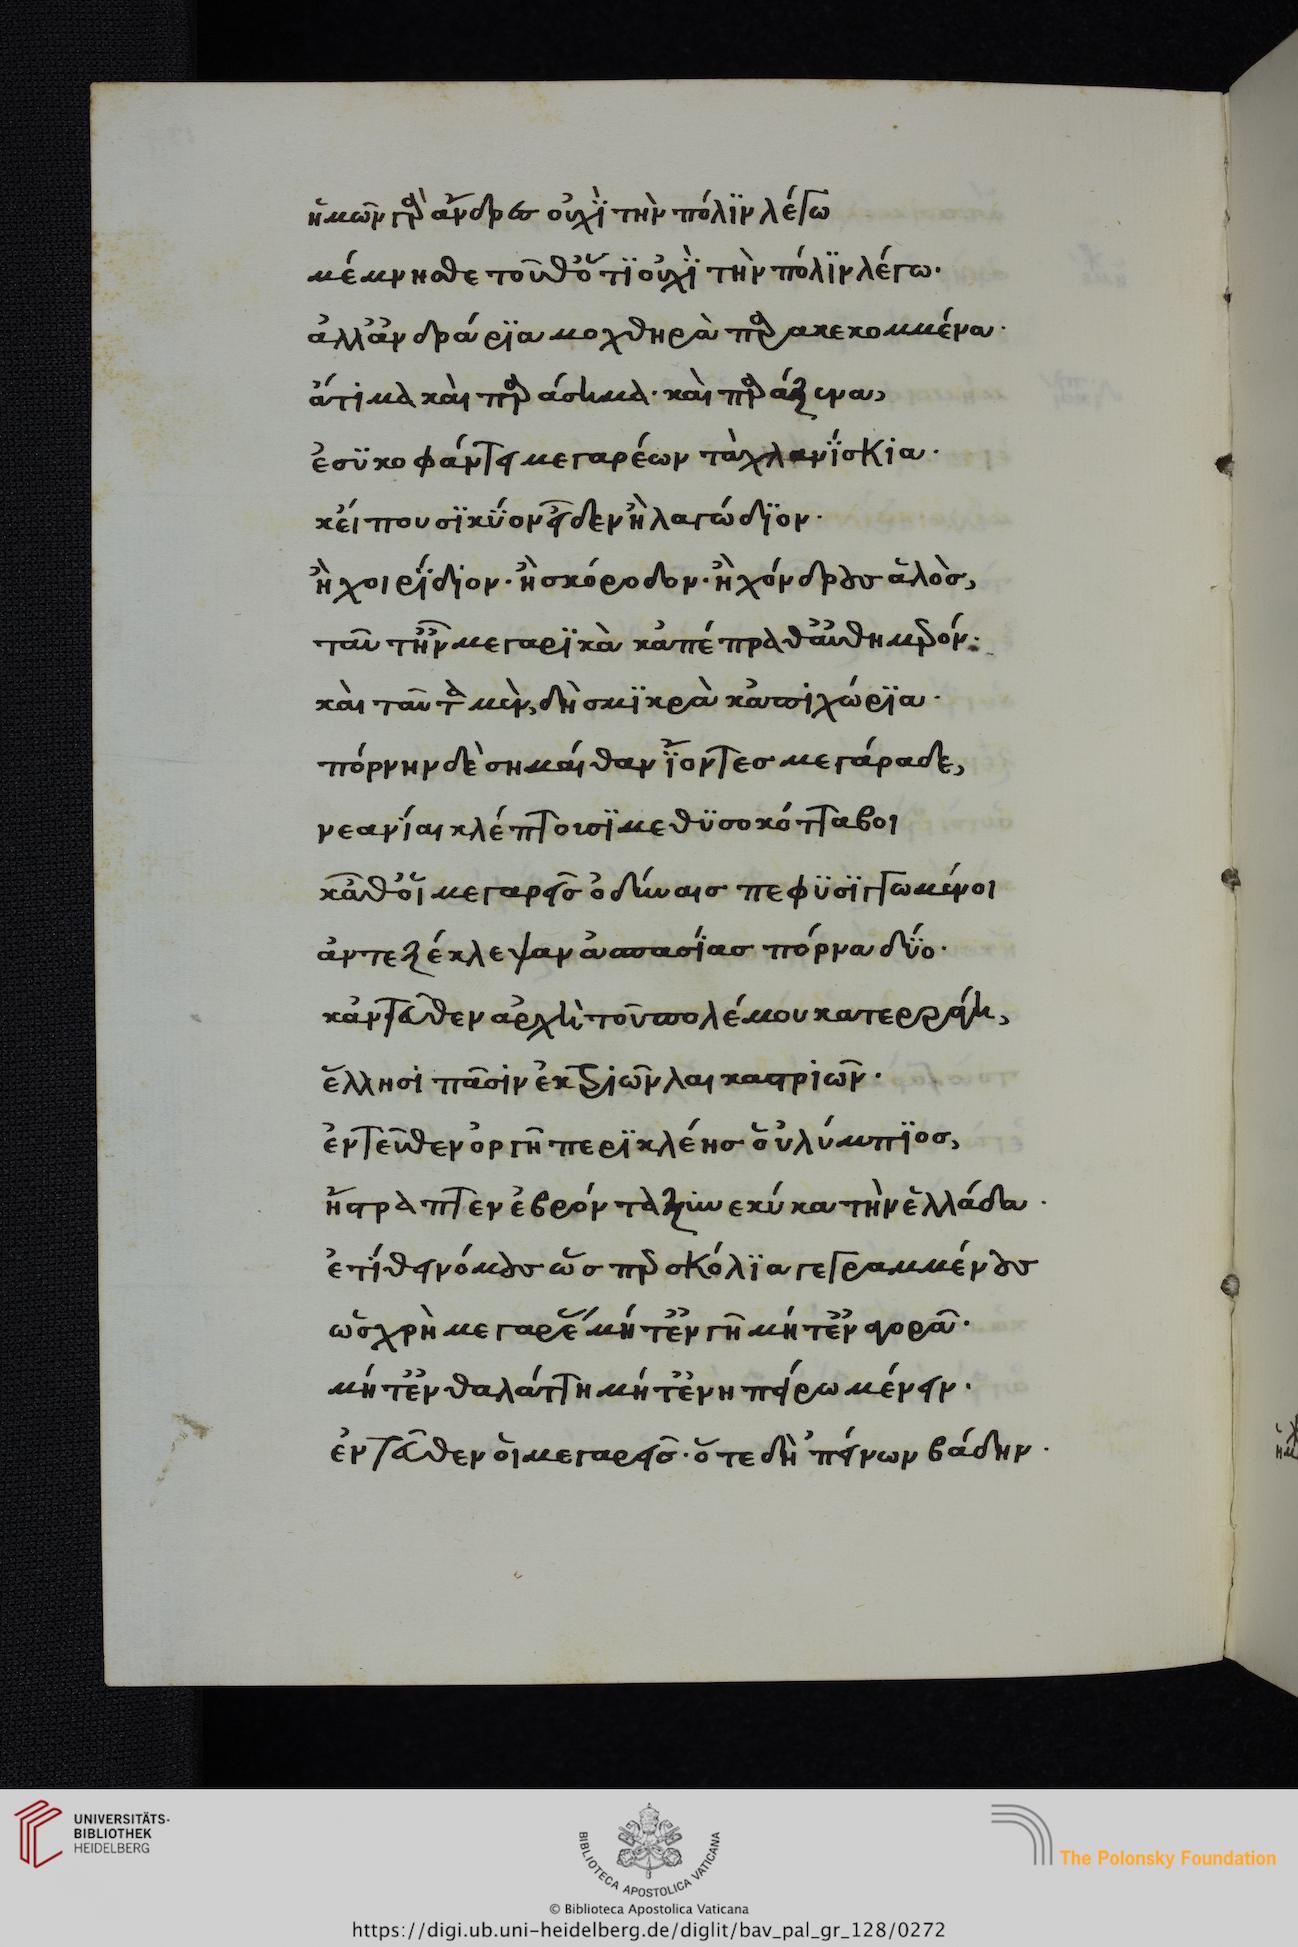 ἡμῶν γὰρ ἄνδρες οὐχὶ τὴν πόλιν λέγω
μέμνησθε τοῦθ' ὅτι οὐχὶ τὴν πόλιν λέγω·
ἀλλ' ἀνδράρια μοχθηρὰ παρακεκομμένα·
ἄτιμα καὶ παράσημα· καὶ παράξενα,
ἐσυκοφάντει μεγαρέων τὰ χλανίσκια·
κεἴ που σίκυον εἶδεν ἢ λαγώδιον·
ἢ χοιρίδιον· ἢ σκόροδον· ἢ χόνδρους ἁλὸς,
ταῦτ' ἦν μεγαρικὰ κἀπέπρατ' αὐθημερόν·
καὶ ταῦτα μὲν, δὴ σμικρὰ κἀπιχώρια·
πόρνην δὲ σημαίθαν ἰόντες μεγάραδε,
νεανίαι κλέπτοισι μεθυσοκότταβοι
κᾆθ' οἱ μεγαρεῖς ὀδύναις πεφυσιγγωμένοι
ἀντεξέκλεψαν ἀσπασίας πόρνα δύο·
κἀντεῦθεν ἀρχὴ τοῦ πολέμου κατερράγη,
ἕλλησι πᾶσιν ἐκ τριῶν λαικαστριῶν·
ἐντεῦθεν ὀργῆ περικλέης οὑλύμπιος,
ἤστραπτεν ἐβρόντα ξυνεκύκα τὴν ἑλλάδα·
ἐτίθει νόμους ὥσπερ σκόλια γεγραμμένους
ὡς χρὴ μεγαρέας μήτ' ἐν γῆ μήτ' ἐν ἀγορᾶ·
μήτ' ἐν θαλάττη μήτ' ἐν ἠπείρω μένειν·
ἐντεῦθεν οἱ μεγαρεῖς· ὅτε δὴ 'πείνων βάδην·
UNIVERSITÄTS-
BIBLIOTHEK
HEIDELBERG
BIBLIOTECA APOSTOLICA VATICANA
© Biblioteca Apostolica Vaticana
The Polonsky Foundation
https://digi.ub.uni-heidelberg.de/diglit/bav_pal_gr_128/0272